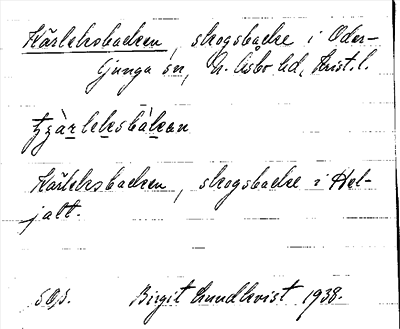 Kärleksbacken, skogsbacke i Oder-
ljunga sn, N. Åsbo hd, Krist. l.
Kärleksbacken, skogsbacke i Hel-
jalt.
SOS. Birgit Lundkvist 1938.